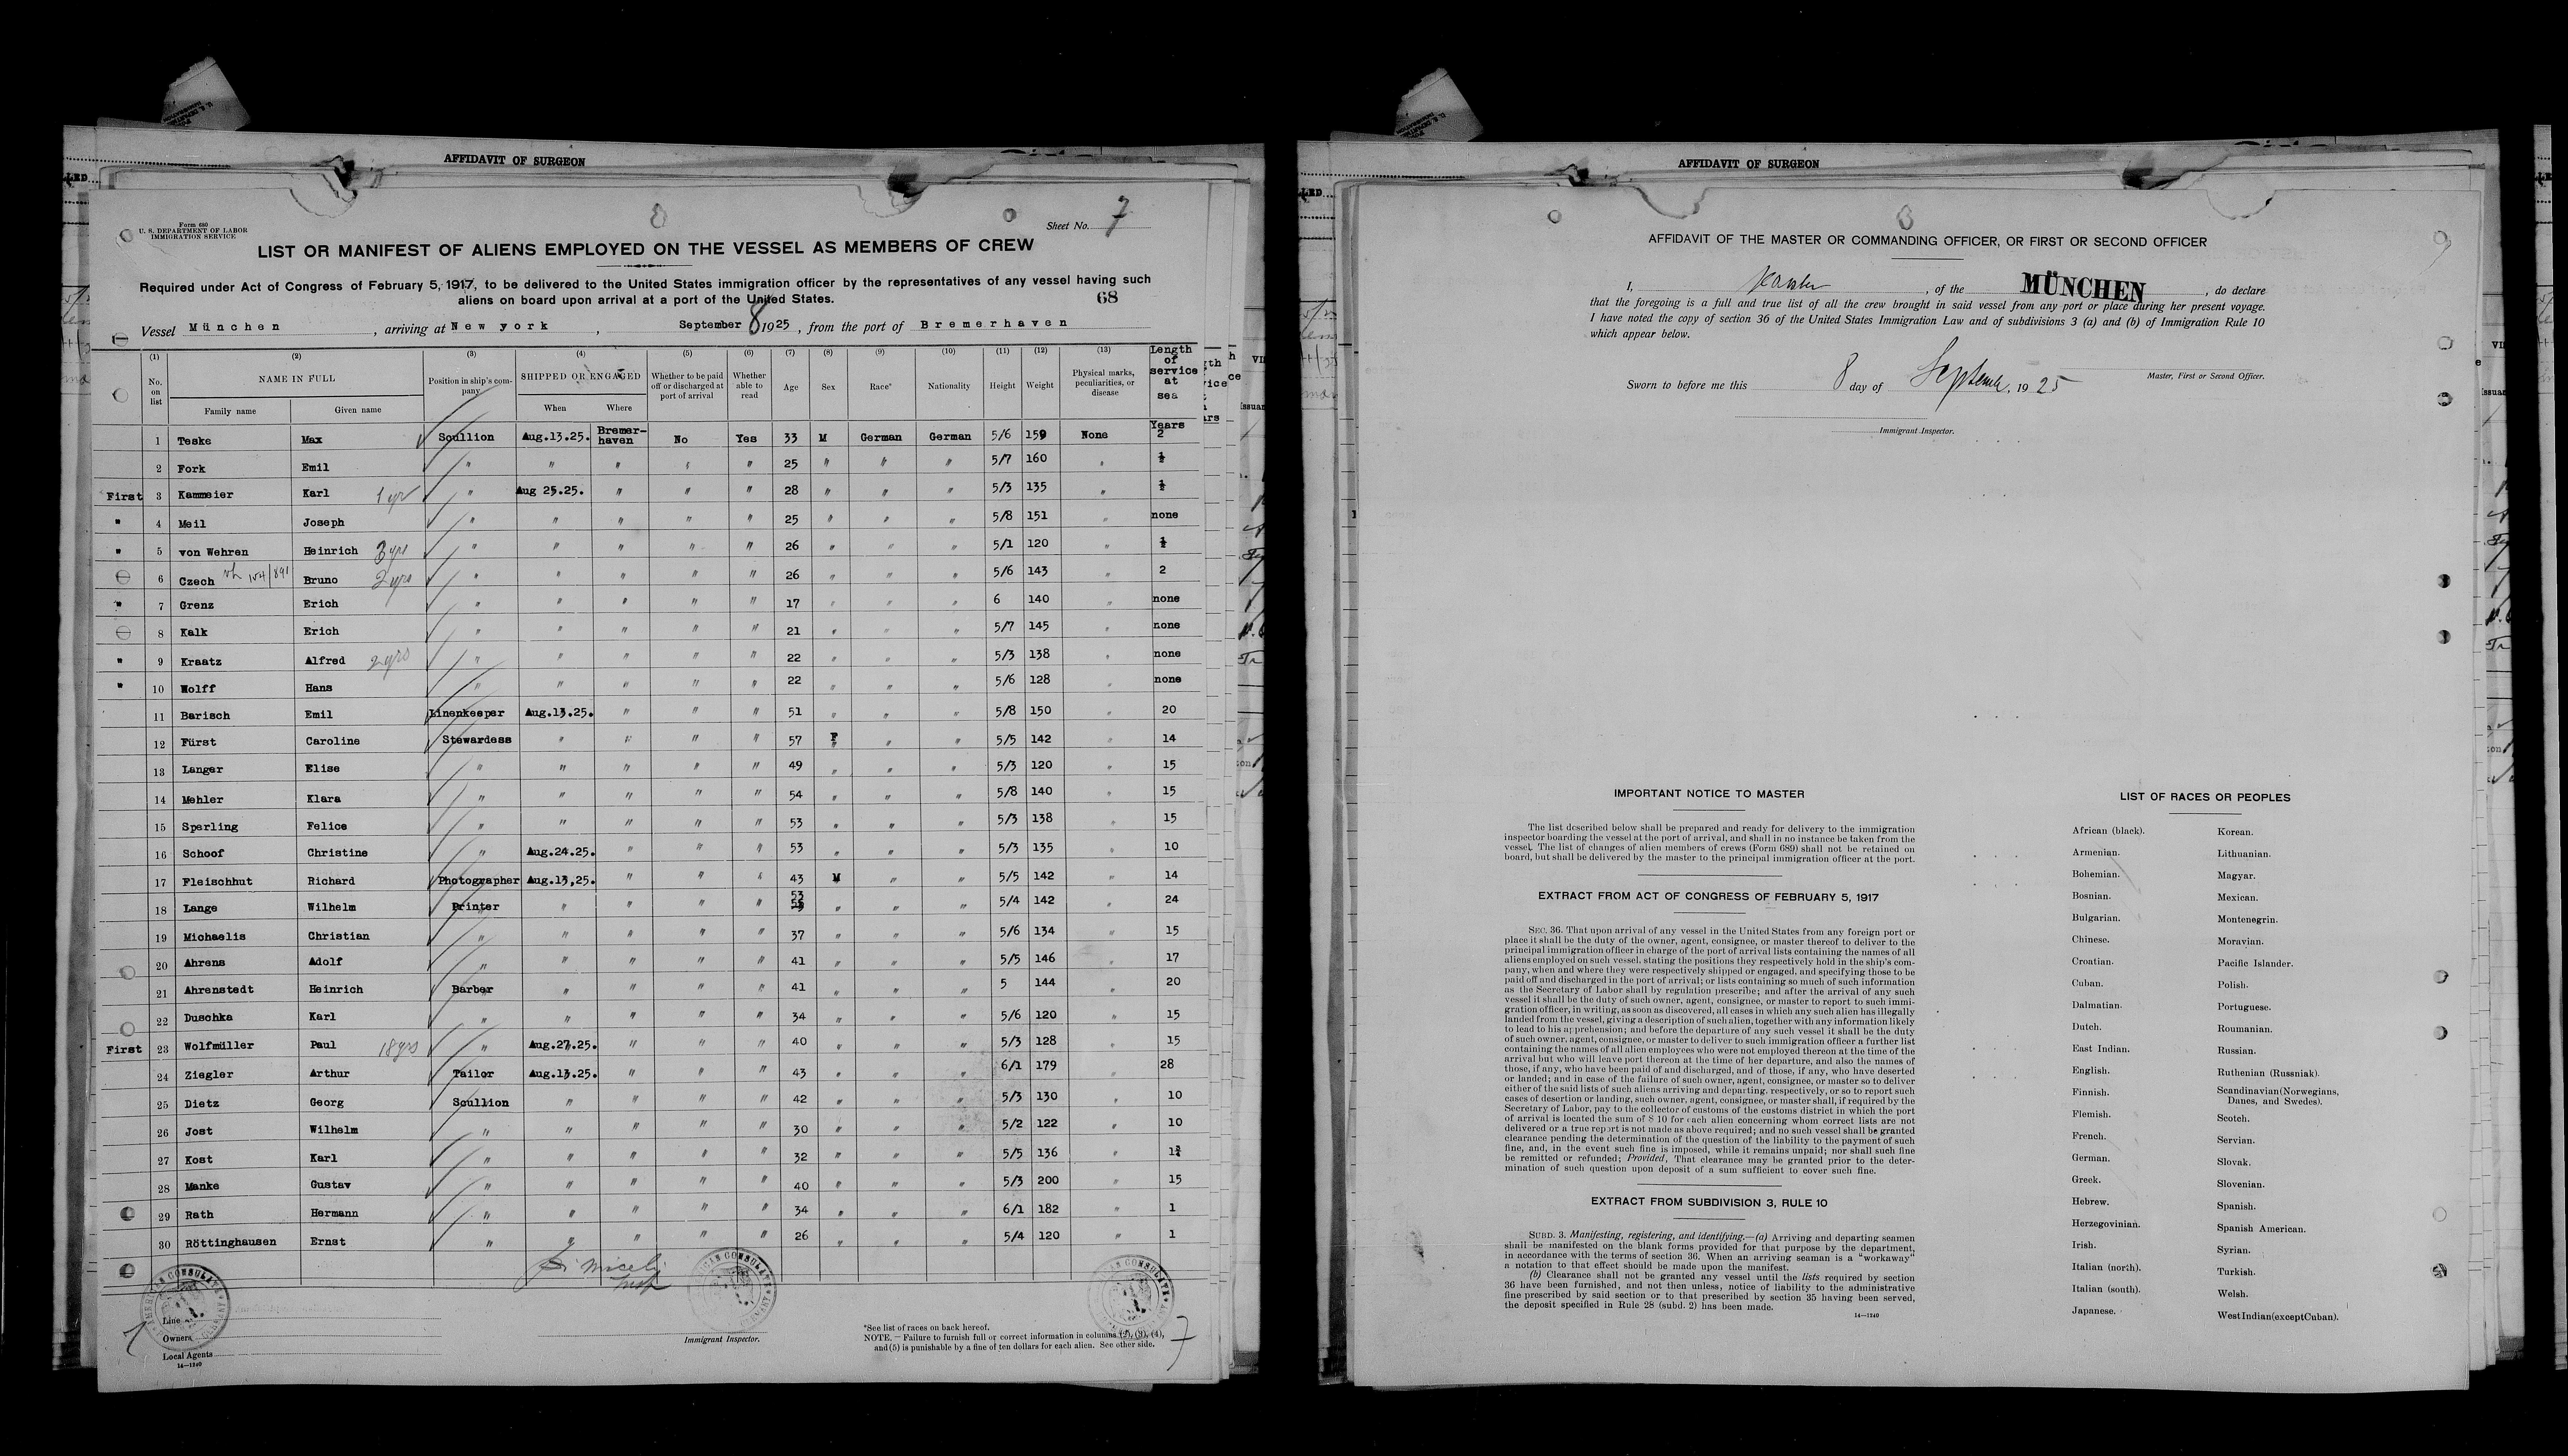 AFFIDAVIT OF SURGEON
Form 680
U. S. DEPARTMENT OF LABOR
IMMIGRATION SERVICE
Sheet No. 7
LIST OR MANIFEST OF ALIENS EMPLOYED ON THE VESSEL AS MEMBERS OF CREW
Required under Act of Congress of February 5, 1917, to be delivered to the United States immigration officer by the representatives of any vessel having such
aliens on board upon arrival at a port of the United States.
68
Vessel München, arriving at New york, September 8 1925, from the port of Bremerhaven
(1) (2) (3) (4) (5) (6) (7) (8) (9) (10) (11) (12) (13)
No. on list NAME IN FULL Position in ship's company SHIPPED OR ENGAGED Whether to be paid off or discharged at port of arrival Whether able to read Age Sex Race* Nationality Height Weight Physical marks, peculiarities, or disease Length of service at sea
Family name Given name When Where Years
1 Teske Max Scullion Aug.13.25. Bremer-haven No Yes 33 M German German 5/6 159 None 2
2 Fork Emil " " " " " 25 " " " 5/7 160 " ½
First 3 Kammeier Karl 1 yr " Aug 25.25. " " " 28 " " " 5/3 135 " ½
" 4 Meil Joseph " " " " " 25 " " " 5/8 151 " none
" 5 von Wehren Heinrich 3 yrs " " " " " 26 " " " 5/1 120 " ½
6 Czech Bruno 2 yrs " " " " " 26 " " " 5/6 143 " 2
" 7 Grenz Erich " " " " " 17 " " " 6 140 " none
8 Kalk Erich " " " " " 21 " " " 5/7 145 " none
" 9 Kraatz Alfred 2 yrs " " " " " 22 " " " 5/3 138 " none
" 10 Wolff Hans " " " " " 22 " " " 5/6 128 " none
11 Barisch Emil Linenkeeper Aug.13.25. " " " 51 " " " 5/8 150 " 20
12 Fürst Caroline Stewardess " " " " 57 F " " 5/5 142 " 14
13 Langer Elise " " " " " 49 " " " 5/3 120 " 15
14 Mehler Klara " " " " " 54 " " " 5/8 140 " 15
15 Sperling Felice " " " " " 53 " " " 5/3 138 " 15
16 Schoof Christine " Aug.24.25. " " " 53 " " " 5/3 135 " 10
17 Fleischhut Richard Photographer Aug.13,25. " " " 43 M " " 5/5 142 " 14
18 Lange Wilhelm Printer " " " " 53 " " " 5/4 142 " 24
19 Michaelis Christian " " " " " 37 " " " 5/6 134 " 15
20 Ahrens Adolf " " " " " 41 " " " 5/5 146 " 17
21 Ahrenstedt Heinrich Barber " " " " 41 " " " 5 144 " 20
22 Duschka Karl " " " " " 34 " " " 5/6 120 " 15
First 23 Wolfmüller Paul 18 yrs " Aug.27.25. " " " 40 " " " 5/3 128 " 15
24 Ziegler Arthur Tailor Aug.13.25. " " " 43 " " " 6/1 179 " 28
25 Dietz Georg Scullion " " " " 42 " " " 5/3 130 " 10
26 Jost Wilhelm " " " " " 30 " " " 5/2 122 " 10
27 Kost Karl " " " " " 32 " " " 5/5 136 "
28 Manke Gustav " " " " " 40 " " " 5/3 200 " 15
29 Rath Hermann " " " " " 34 " " " 6/1 182 " 1
30 Röttinghausen Ernst " " " " " 26 " " " 5/4 120 " 1
Line
Owners
Local Agents
14—1240
Immigrant Inspector.
*See list of races on back hereof.
NOTE.—Failure to furnish full or correct information in columns (2), (3), (4),
and (5) is punishable by a fine of ten dollars for each alien. See other side.
7
AFFIDAVIT OF SURGEON
AFFIDAVIT OF THE MASTER OR COMMANDING OFFICER, OR FIRST OR SECOND OFFICER
I, , of the MÜNCHEN, do declare
that the foregoing is a full and true list of all the crew brought in said vessel from any port or place during her present voyage.
I have noted the copy of section 36 of the United States Immigration Law and of subdivisions 3 (a) and (b) of Immigration Rule 10
which appear below.
Master, First or Second Officer.
Sworn to before me this 8 day of September, 1925
Immigrant Inspector.
IMPORTANT NOTICE TO MASTER
The list described below shall be prepared and ready for delivery to the immigration
inspector boarding the vessel at the port of arrival, and shall in no instance be taken from the
vessel. The list of changes of alien members of crews (Form 689) shall not be retained on
board, but shall be delivered by the master to the principal immigration officer at the port.
EXTRACT FROM ACT OF CONGRESS OF FEBRUARY 5, 1917
SEC. 36. That upon arrival of any vessel in the United States from any foreign port or
place it shall be the duty of the owner, agent, consignee, or master thereof to deliver to the
principal immigration officer in charge of the port of arrival lists containing the names of all
aliens employed on such vessel, stating the positions they respectively hold in the ship's com-
pany, when and where they were respectively shipped or engaged, and specifying those to be
paid off and discharged in the port of arrival; or lists containing so much of such information
as the Secretary of Labor shall by regulation prescribe; and after the arrival of any such
vessel it shall be the duty of such owner, agent, consignee, or master to report to such immi-
gration officer, in writing, as soon as discovered, all cases in which any such alien has illegally
landed from the vessel, giving a description of such alien, together with any information likely
to lead to his apprehension; and before the departure of any such vessel it shall be the duty
of such owner, agent, consignee, or master to deliver to such immigration officer a further list
containing the names of all alien employees who were not employed thereon at the time of the
arrival but who will leave port thereon at the time of her departure, and also the names of
those, if any, who have been paid off and discharged, and of those, if any, who have deserted
or landed; and in case of the failure of such owner, agent, consignee, or master so to deliver
either of the said lists of such aliens arriving and departing, respectively, or so to report such
cases of desertion or landing, such owner, agent, consignee, or master shall, if required by the
Secretary of Labor, pay to the collector of customs of the customs district in which the port
of arrival is located the sum of $10 for each alien concerning whom correct lists are not
delivered or a true report is not made as above required; and no such vessel shall be granted
clearance pending the determination of the question of the liability to the payment of such
fine, and, in the event such fine is imposed, while it remains unpaid; nor shall such fine
be remitted or refunded; Provided, That clearance may be granted prior to the deter-
mination of such question upon deposit of a sum sufficient to cover such fine.
EXTRACT FROM SUBDIVISION 3, RULE 10
SUBD. 3. Manifesting, registering, and identifying.—(a) Arriving and departing seamen
shall be manifested on the blank forms provided for that purpose by the department,
in accordance with the terms of section 36. When an arriving seaman is a "workaway"
a notation to that effect should be made upon the manifest.
(b) Clearance shall not be granted any vessel until the lists required by section
36 have been furnished, and not then unless, notice of liability to the administrative
fine prescribed by said section or to that prescribed by section 35 having been served,
the deposit specified in Rule 28 (subd. 2) has been made.
14—1240
LIST OF RACES OR PEOPLES
African (black).
Armenian.
Bohemian.
Bosnian.
Bulgarian.
Chinese.
Croatian.
Cuban.
Dalmatian.
Dutch.
East Indian.
English.
Finnish.
Flemish.
French.
German.
Greek.
Hebrew.
Herzegovinian.
Irish.
Italian (north).
Italian (south).
Japanese.
Korean.
Lithuanian.
Magyar.
Mexican.
Montenegrin.
Moravian.
Pacific Islander.
Polish.
Portuguese.
Roumanian.
Russian.
Ruthenian (Russniak).
Scandinavian (Norwegians,
Danes, and Swedes).
Scotch.
Servian.
Slovak.
Slovenian.
Spanish.
Spanish American.
Syrian.
Turkish.
Welsh.
West Indian (except Cuban).